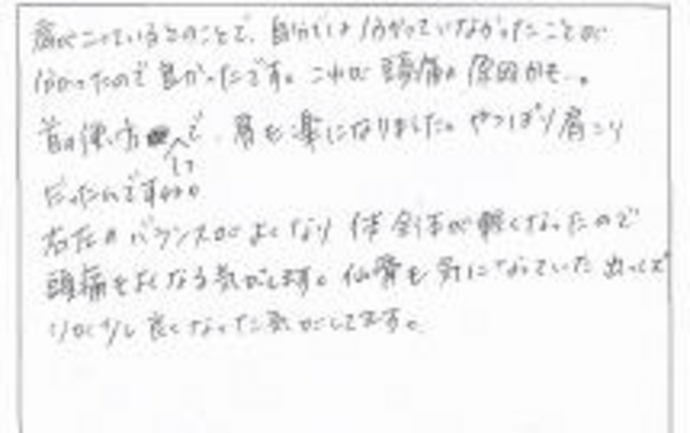 肩がこっているとのことで、自分では分かっていなかったことが
分かったので良かったです。これが頭痛の原因かも…。
首の使い方 で、肩も楽になりました。やっぱり肩こり
だったんですね。
左右のバランスがよくなり 体全体が軽くなったので
頭痛もよくなる気がします。仙骨も気になっていた
少し良くなった気がしてます。